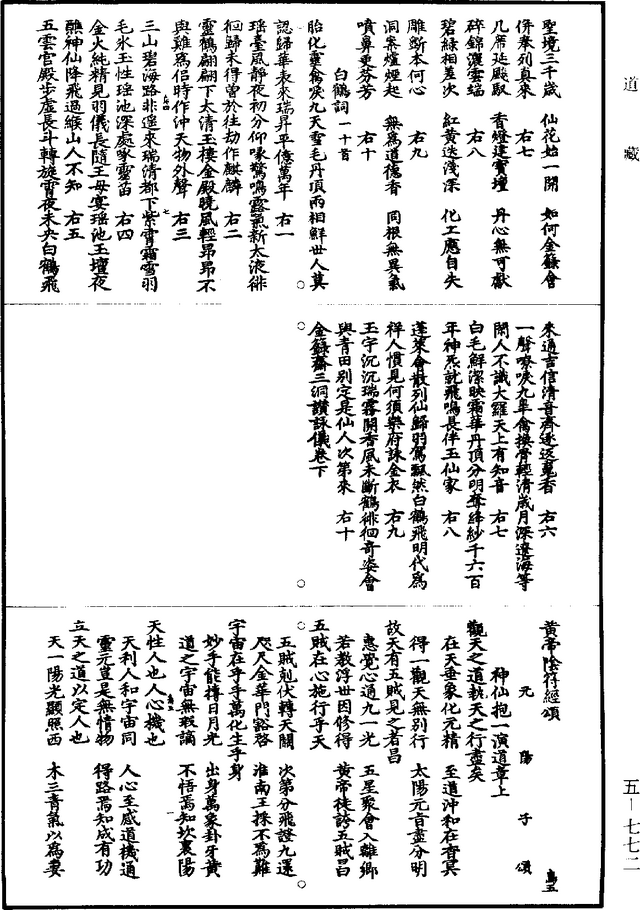 道藏
聖境三千歲　仙花始一開　如何金籙會
併奉列真來　右七
几席延飈馭　香燈建寶壇　丹心無可獻
碎錦灑雲端　右八
碧綠相差次　紅黃迭淺深　化工應自失
雕斲本何心　右九
洞案爐煙起　無為道德香　同根無異氣
噴鼻更芬芳　右十
白鶴詞一十首
胎化靈禽唳九天雪毛丹頂兩相鮮世人莫
認歸華表來瑞昇平億萬年　右一
瑤臺風靜夜初分仰喙驚鳴露氣新太液徘
徊歸未得曾於往劫作麒麟　右二
靈鶴翩翩下太清玉樓金殿曉風輕昂昂不
與雞為侶時作沖天物外聲　右三
三山碧海路非遥來瑞清都下紫霄霜雪羽
毛氷玉性瑶池深處啄靈苗　右四
金火純精見羽儀長隨王母宴瑶池玉壇夜
醮神仙降飛過緱山人不知　右五
五雲宮殿步虛長斗轉旋霄夜未央白鶴飛
來通吉信清音齊逐返䰟香　右六
一聲嘹唳九臯禽換骨輕清歲月深遼海等
閑人不識大羅天上有知音　右七
白毛鮮潔映霜華丹頂分明奪絳紗千六百
年神炁就飛鳴長伴玉仙家　右八
蓬萊會散列仙歸羽駕飄然白鶴飛明代為
祥人慣見何須樂府詠金衣　右九
玉宇沉沉瑞霧開香風未斷鶴徘徊奇姿會
與青田別定是仙人次第來　右十
金籙齋三洞讚詠儀卷下
黃帝陰符經頌
元陽子頌
神仙抱一演道章上
觀天之道執天之行盡矣
在天垂象化元精　至道沖和在杳冥
得一觀天無別行　太陽元首盡分明
故天有五賊見之者昌
惠覺心通九一光　五星聚會入離鄉
若教浮世因修得　黃帝徒誇五賊昌
五賊在心施行乎天
五賊剋伏轉天關　次第分飛證九還
咫尺金華門豁啓　淮南王採不為難
宇宙在乎手萬化生乎身
妙手能摶日月光　出身萬象卦牙黃
道之宇宙無瑕謫　不悟焉知坎裏陽
天性人也人心機也
天利人和宇宙同　人心至感道機通
靈元豈是無情物　得路焉知成有功
立天之道以定人也
天一陽光顯照西　木三青氣以為妻
五一七七二